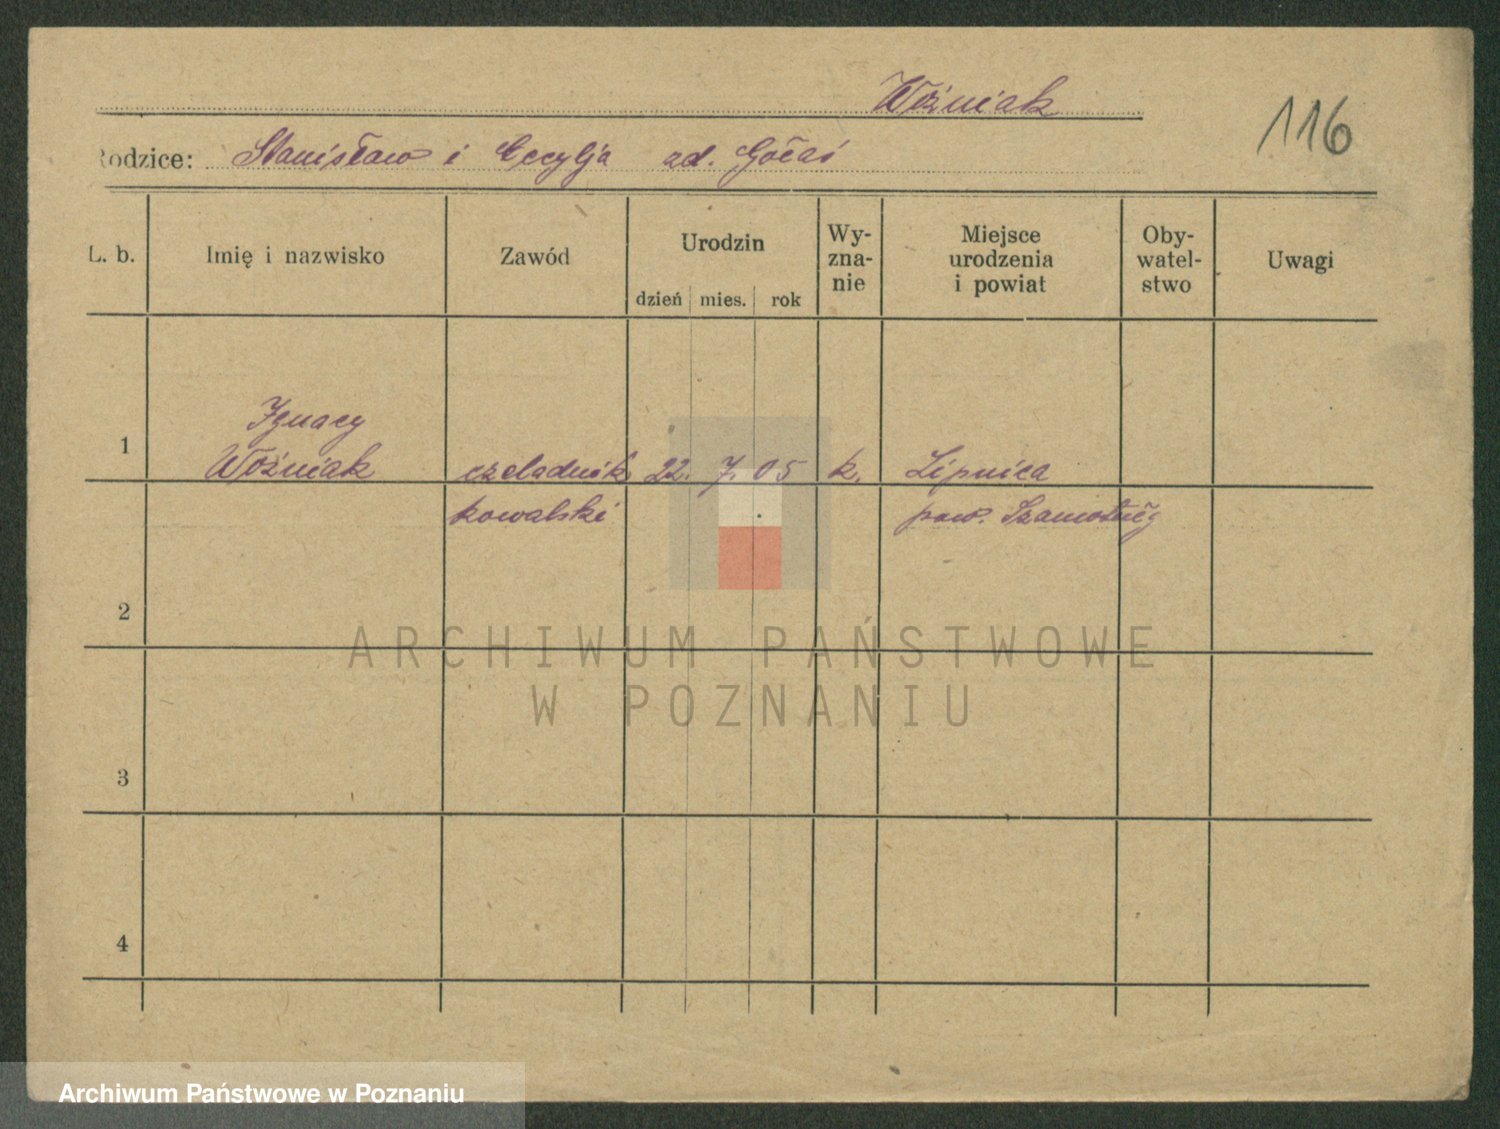 Woźniak
116
Rodzice: Stanisław i Cecylja
L. b. Imię i nazwisko Zawód Urodzin Wy- Miejsce Oby- Uwagi
zna- urodzenia watel-
nie i powiat stwo
dzień mies. rok
Ignacy
1 Woźniak czeladnik 22. 7. 05 k. Lipnica
kowalski pow. Szamotuły
2
3
4
ARCHIWUM PAŃSTWOWE
W POZNANIU
Archiwum Państwowe w Poznaniu